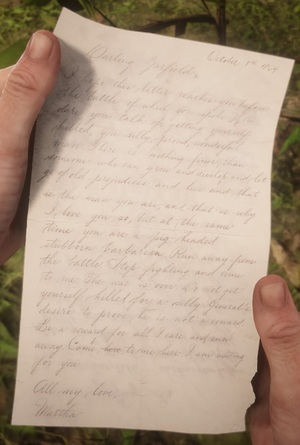 October 1st
Darling Garfield,
I hope this letter reaches you before
the battle of which you spoke.
you talk of getting yourself
you silly, proud, wonderful
man. There is nothing finer than
someone who can grow and develop and let
go of old prejudices and lies and that
is the man you are, and that is why
I love you so, but at the same
time you are a pig headed
stubborn barbarian. Run away from
the battle. Stop fighting and come
to me. The war is over. Do not get
yourself killed for a silly General's
desire to prove. It is not a reward
a reward for all I care and run
away. Come to me, here I am waiting
for you.
All my love,
Martha